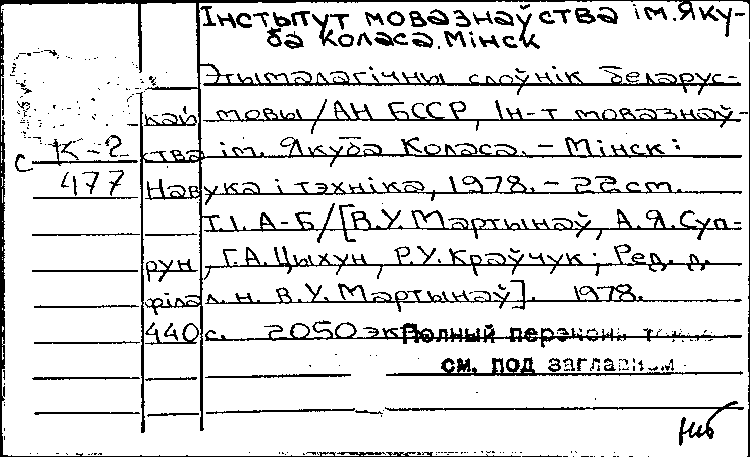 Інстытут мовазнаўства ім. Яку-
ба Коласа. Мінск
Этымалагічны слоўнік беларус-
кай мовы / АН БССР, Ін-т мовазнаў-
К-2 ства ім. Якуба Коласа. – Мінск:
С
477 Навука і тэхніка, 1978. – 22 cm.
Т.1. А-Б / [В.У. Мартынаў, А.Я. Суп-
рун, Г.А. Цыхун, Р.У. Краўчук; Рэд. д.
філал. н. В.У. Мартынаў]. 1978.
440 с. 2050 эк Полный перечень
см. под заглавием